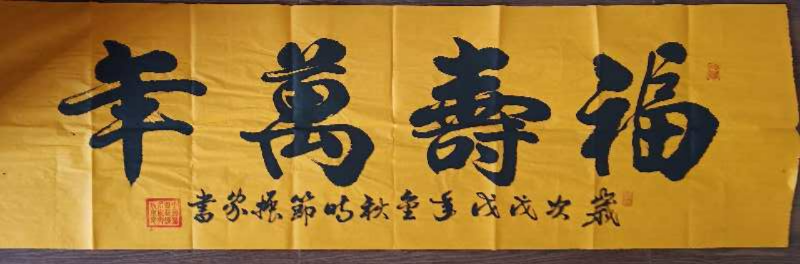 福壽萬年
歲次戊戌年金秋時節振家書